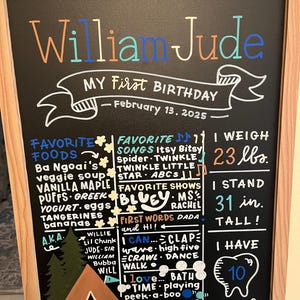 William Jude
MY First BIRTHDAY
February 13, 2025
FAVORITE
FOODS
Ba Ngoai's
veggie soup
VANILLA MAPLE
PUFFS · GREEK
YOGURT · eggs
TANGERINES
bananas
AKA
WILLIE
Lil Chunk
JUDE · SIR
WILLIAM
Bubba
Will
FAVORITE
SONGS Itsy Bitsy
Spider · TWINKLE
TWINKLE LITTLE
STAR · ABCs
FAVORITE SHOWS
BLUEY · MS.
RACHEL
FIRST WORDS DADA
and Hi!
I CAN... CLAP
wave · high five
CRAWL · DANCE
WALK
I love... BATH
TIME · playing
peek-a-boo
I WEIGH
23 lbs.
I STAND
31 in.
TALL!
I HAVE
10